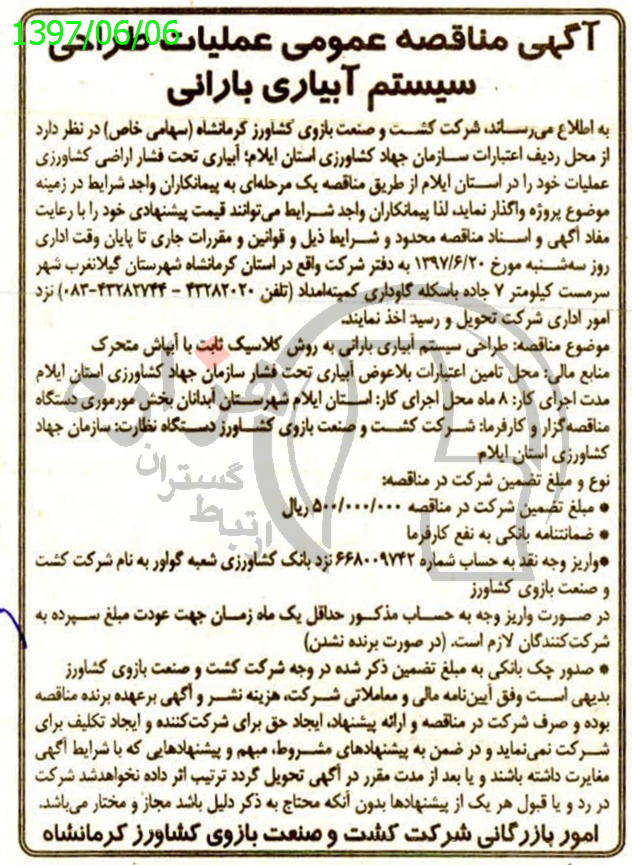 1397/06/06
آگهی مناقصه عمومی عملیات طراحی
سیستم آبیاری بارانی
به اطلاع می‌رساند، شرکت کشت و صنعت بازوی کشاورز کرمانشاه (سهامی خاص) در نظر دارد
از محل ردیف اعتبارات سازمان جهاد کشاورزی استان ایلام؛ آبیاری تحت فشار اراضی کشاورزی
عملیات خود را در استان ایلام از طریق مناقصه یک مرحله‌ای به پیمانکاران واجد شرایط در زمینه
موضوع پروژه واگذار نماید، لذا پیمانکاران واجد شرایط می‌توانند قیمت پیشنهادی خود را با رعایت
مفاد آگهی و اسناد مناقصه محدود و شرایط ذیل و قوانین و مقررات جاری تا پایان وقت اداری
روز سه‌شنبه مورخ ۱۳۹۷/۶/۲۰ به دفتر شرکت واقع در استان کرمانشاه شهرستان گیلانغرب شهر
سرمست کیلومتر ۷ جاده باسکله گاوداری کمیته‌امداد (تلفن ۴۳۲۸۲۰۲۰ – ۴۳۲۸۲۷۴۴-۰۸۳) نزد
امور اداری شرکت تحویل و رسید اخذ نمایند.
موضوع مناقصه: طراحی سیستم آبیاری بارانی به روش کلاسیک ثابت با آبپاش متحرک
منابع مالی: محل تامین اعتبارات بلاعوض آبیاری تحت فشار سازمان جهاد کشاورزی استان ایلام
مدت اجرای کار: ۸ ماه محل اجرای کار: استان ایلام شهرستان آبدانان بخش مورموری دستگاه
مناقصه‌گزار و کارفرما: شرکت کشت و صنعت بازوی کشاورز دستگاه نظارت: سازمان جهاد
کشاورزی استان ایلام
نوع و مبلغ تضمین شرکت در مناقصه:
* مبلغ تضمین شرکت در مناقصه ۵۰۰/۰۰۰/۰۰۰ ریال
* ضمانتنامه بانکی به نفع کارفرما
*واریز وجه نقد به حساب شماره ۶۶۸۰۰۹۷۴۲ نزد بانک کشاورزی شعبه گواور به نام شرکت کشت
و صنعت بازوی کشاورز
در صورت واریز وجه به حساب مذکور حداقل یک ماه زمان جهت عودت مبلغ سپرده به
شرکت‌کنندگان لازم است. (در صورت برنده نشدن)
* صدور چک بانکی به مبلغ تضمین ذکر شده در وجه شرکت کشت و صنعت بازوی کشاورز
بدیهی است وفق آیین‌نامه مالی و معاملاتی شرکت، هزینه نشر و آگهی برعهده برنده مناقصه
بوده و صرف شرکت در مناقصه و ارائه پیشنهاد، ایجاد حق برای شرکت‌کننده و ایجاد تکلیف برای
شرکت نمی‌نماید و در ضمن به پیشنهادهای مشروط، مبهم و پیشنهادهایی که با شرایط آگهی
مغایرت داشته باشند و یا بعد از مدت مقرر در آگهی تحویل گردد ترتیب اثر داده نخواهدشد شرکت
در رد و یا قبول هر یک از پیشنهادها بدون آنکه محتاج به ذکر دلیل باشد مجاز و مختار می‌باشد.
امور بازرگانی شرکت کشت و صنعت بازوی کشاورز کرمانشاه
هزاره
گستران
ارتباط